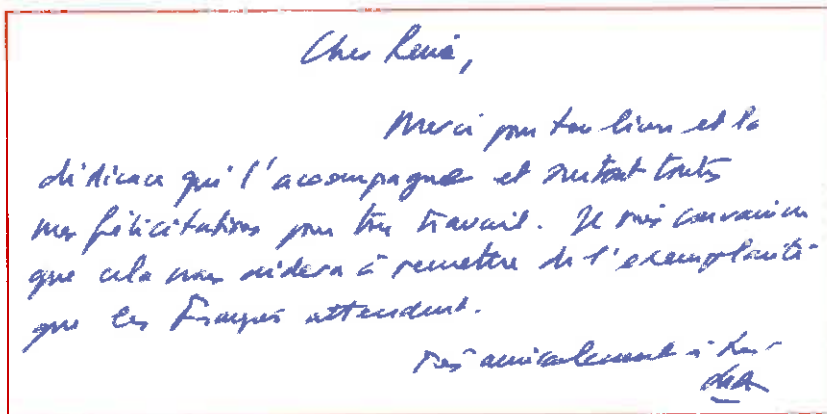 Cher René,
Merci pour ton livre et la
dédicace qui l'accompagne et surtout toutes
mes félicitations pour ton travail. Je suis convaincu
que cela nous aidera à remettre de l'exemplarité
que les Français attendent.
Très amicalement à toi